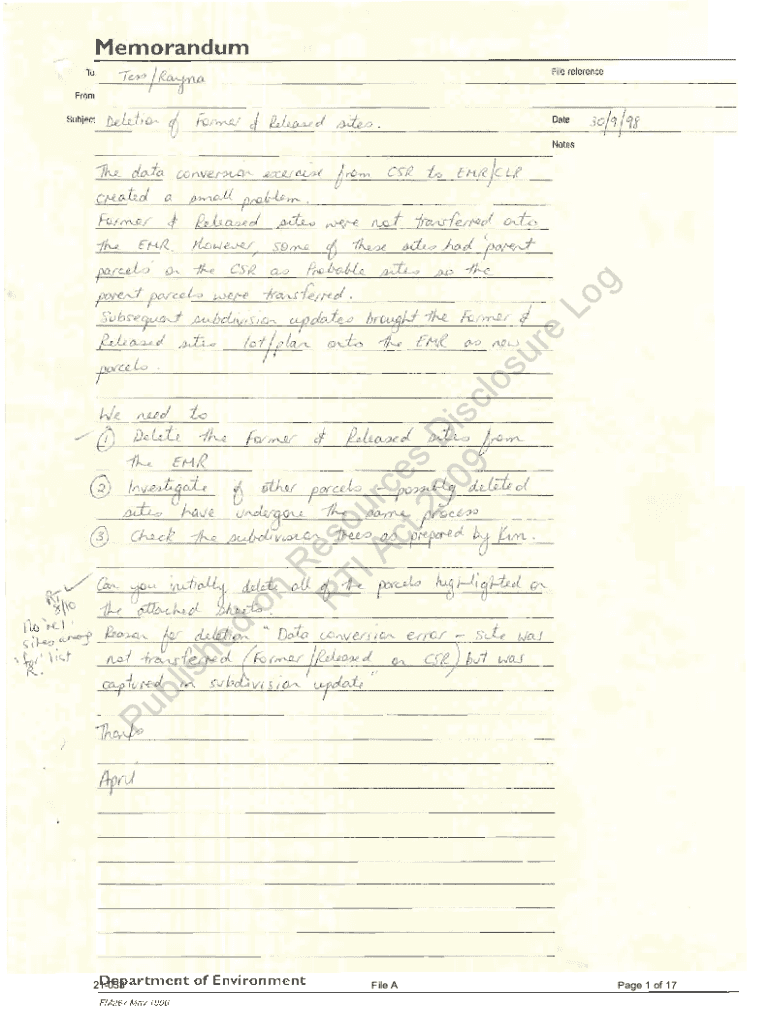 Memorandum
To Tess/Rayna File reference
From
Subject Deletion of Former & Released sites. Date 30/9/98
Notes
The data conversion exercise from CSR to EMR/CLR
created a small problem.
Former & Released sites were not transferred onto
the EMR. However, some of these sites had 'parent
parcels' on the CSR as Probable sites so the
parent parcels were transferred.
Subsequent subdivision updates brought the Former &
Released sites lot/plan onto the EMR as new
parcels.
We need to
① Delete the Former & Released sites from
the EMR
② Investigate if other parcels - possibly deleted
sites have undergone the same process
③ Check the subdivision trees as prepared by Kim.
Can you initially delete all of the parcels highlighted on
the attached sheets.
RT
8/10
No
sites
for list
R.
Reason for deletion "Data conversion error - site was
not transferred (Former/Released on CSR) but was
captured in subdivision update"
Thanks
April
Published on Resources Disclosure Log
RTI Act 2009
21-038
Department of Environment File A Page 1 of 17